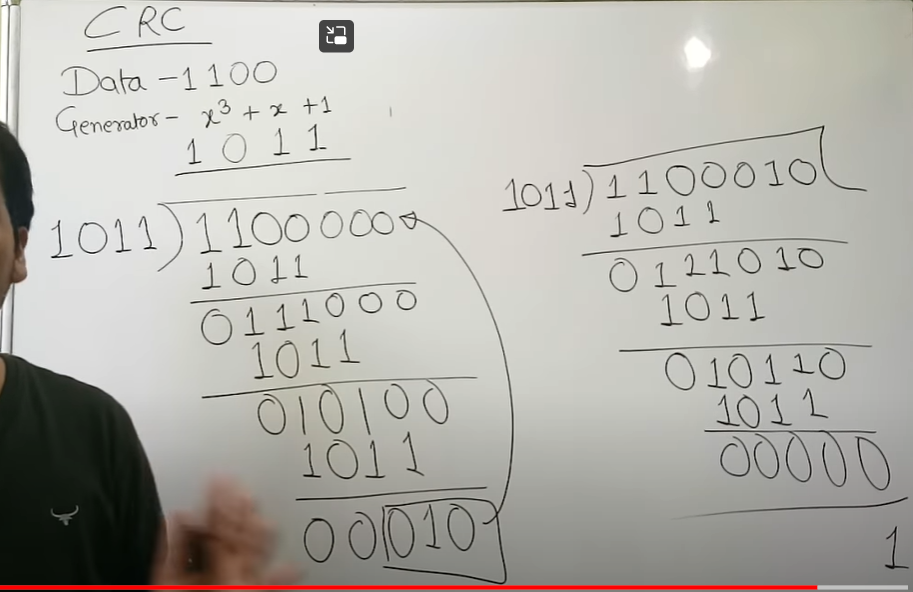 CRC
Data - 1100
Generator - x³ + x + 1
1 0 1 1
1011 ) 1100000
1011
0111000
1011
010100
1011
00010
1011 ) 1100010
1011
0111010
1011
010110
1011
00000
1